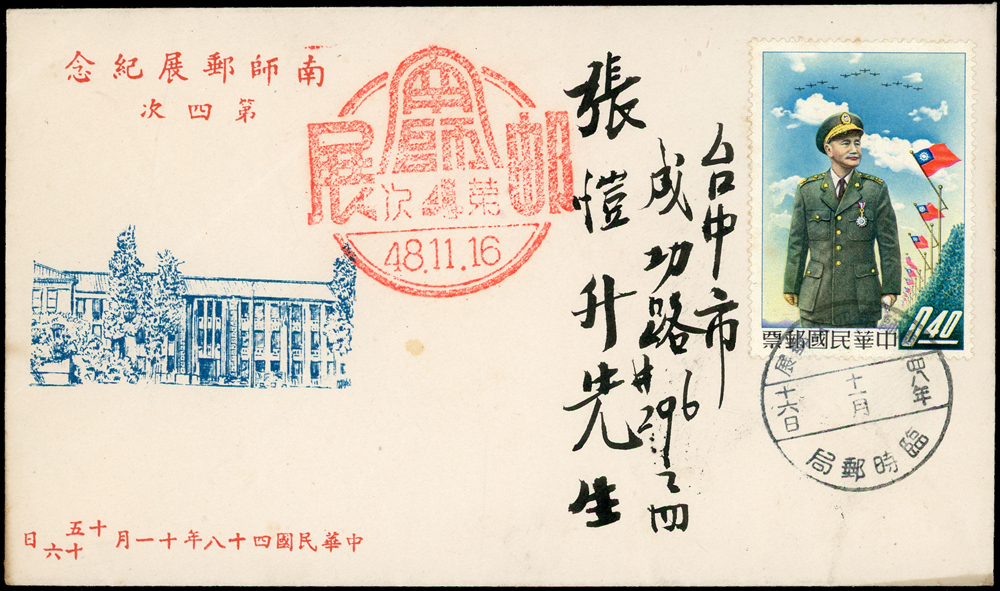 南師郵展紀念
第四次
南師
郵展
第4次
48.11.16
台中市
成功路#296之四
張愷升先生
0.40
中華民國郵票
郵展
四八年
十一月
十六日
臨時郵局
中華民國四十八年十一月十五十六日